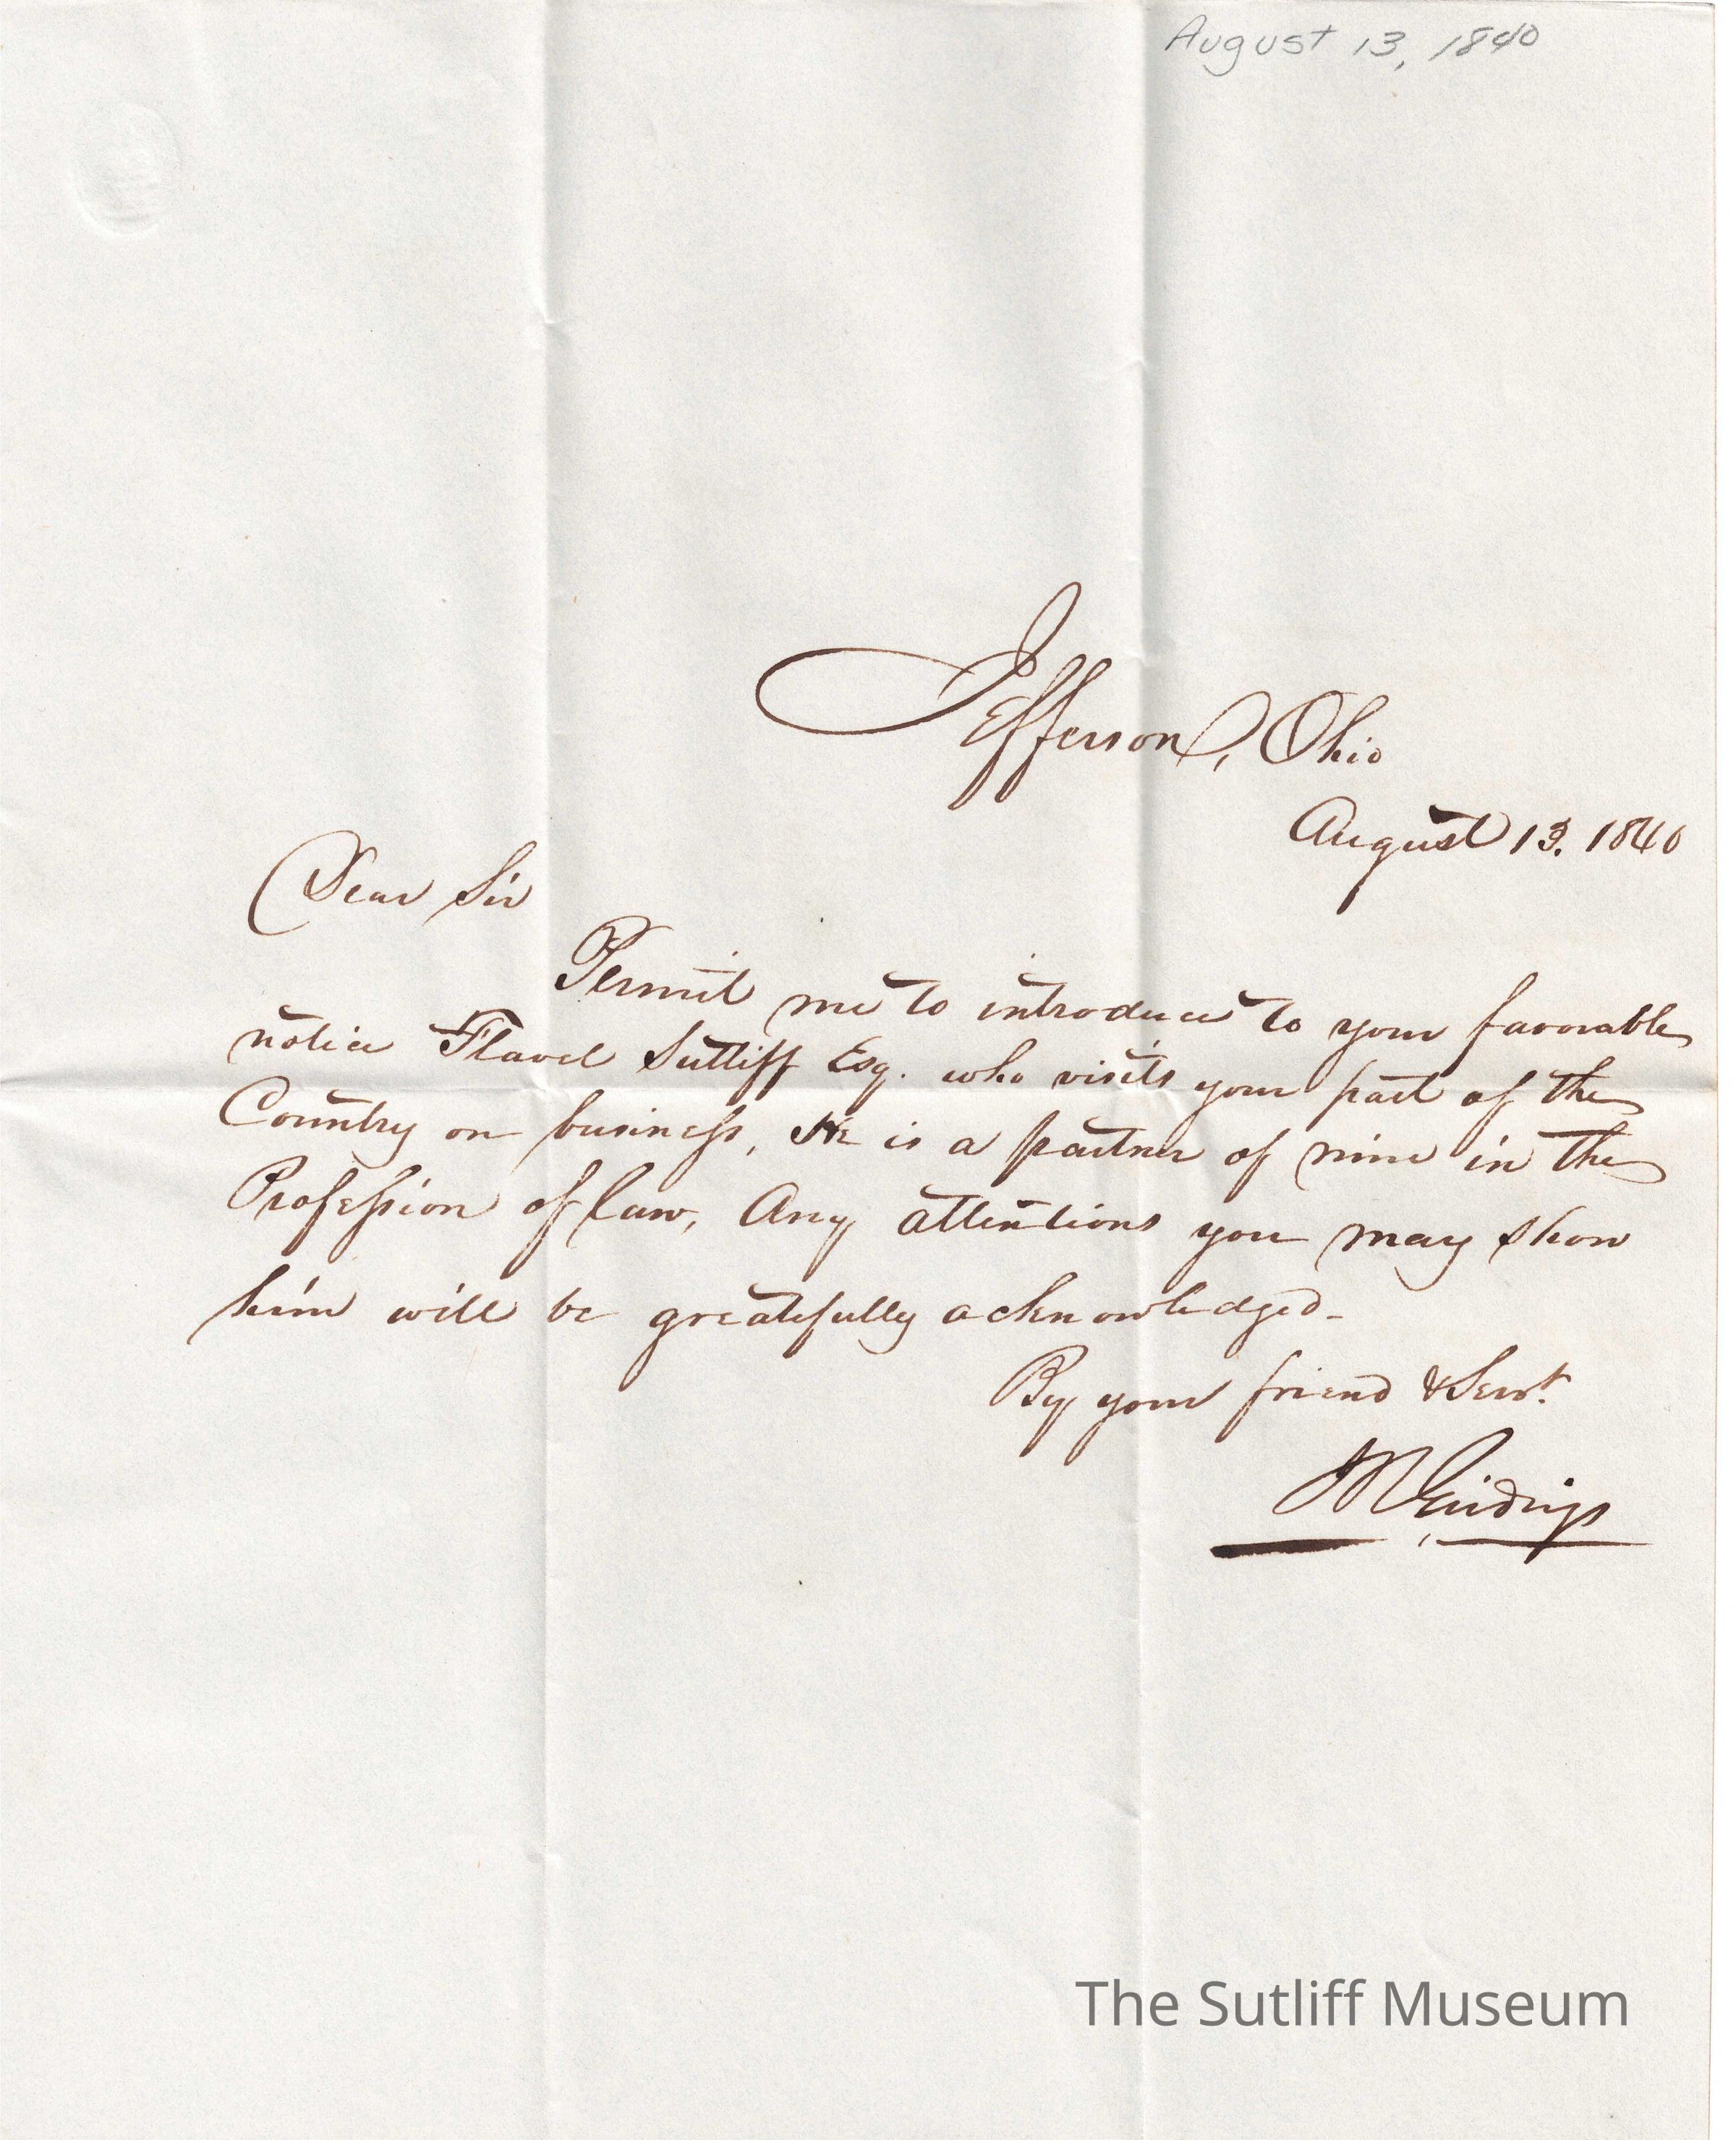 August 13, 1840
Jefferson, Ohio
August 13. 1840
Dear Sir
Permit me to introduce to your favorable
notice Flavel Sutliff Esq. who visits your part of the
Country on business, He is a partner of mine in the
Profession of law, Any attentions you may show
him will be greatefully acknowledged-
By your friend & Servt.
Giddings
The Sutliff Museum